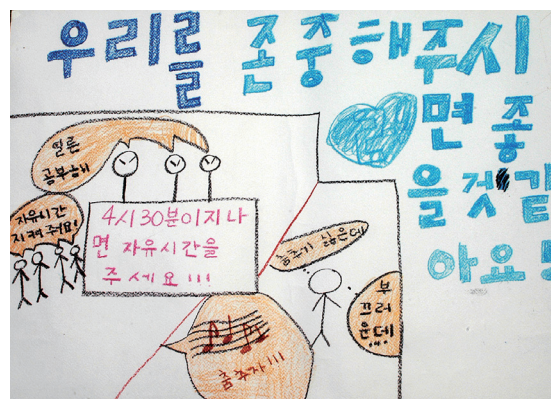 우리를 존중해주시
면 좋
을것같
아요!
얼른
공부해
자유시간
지켜줘요!
4시30분이지나
면 자유시간을
주세요!!!
춤추기 싫은데
부
끄러
운데!
춤추자!!!